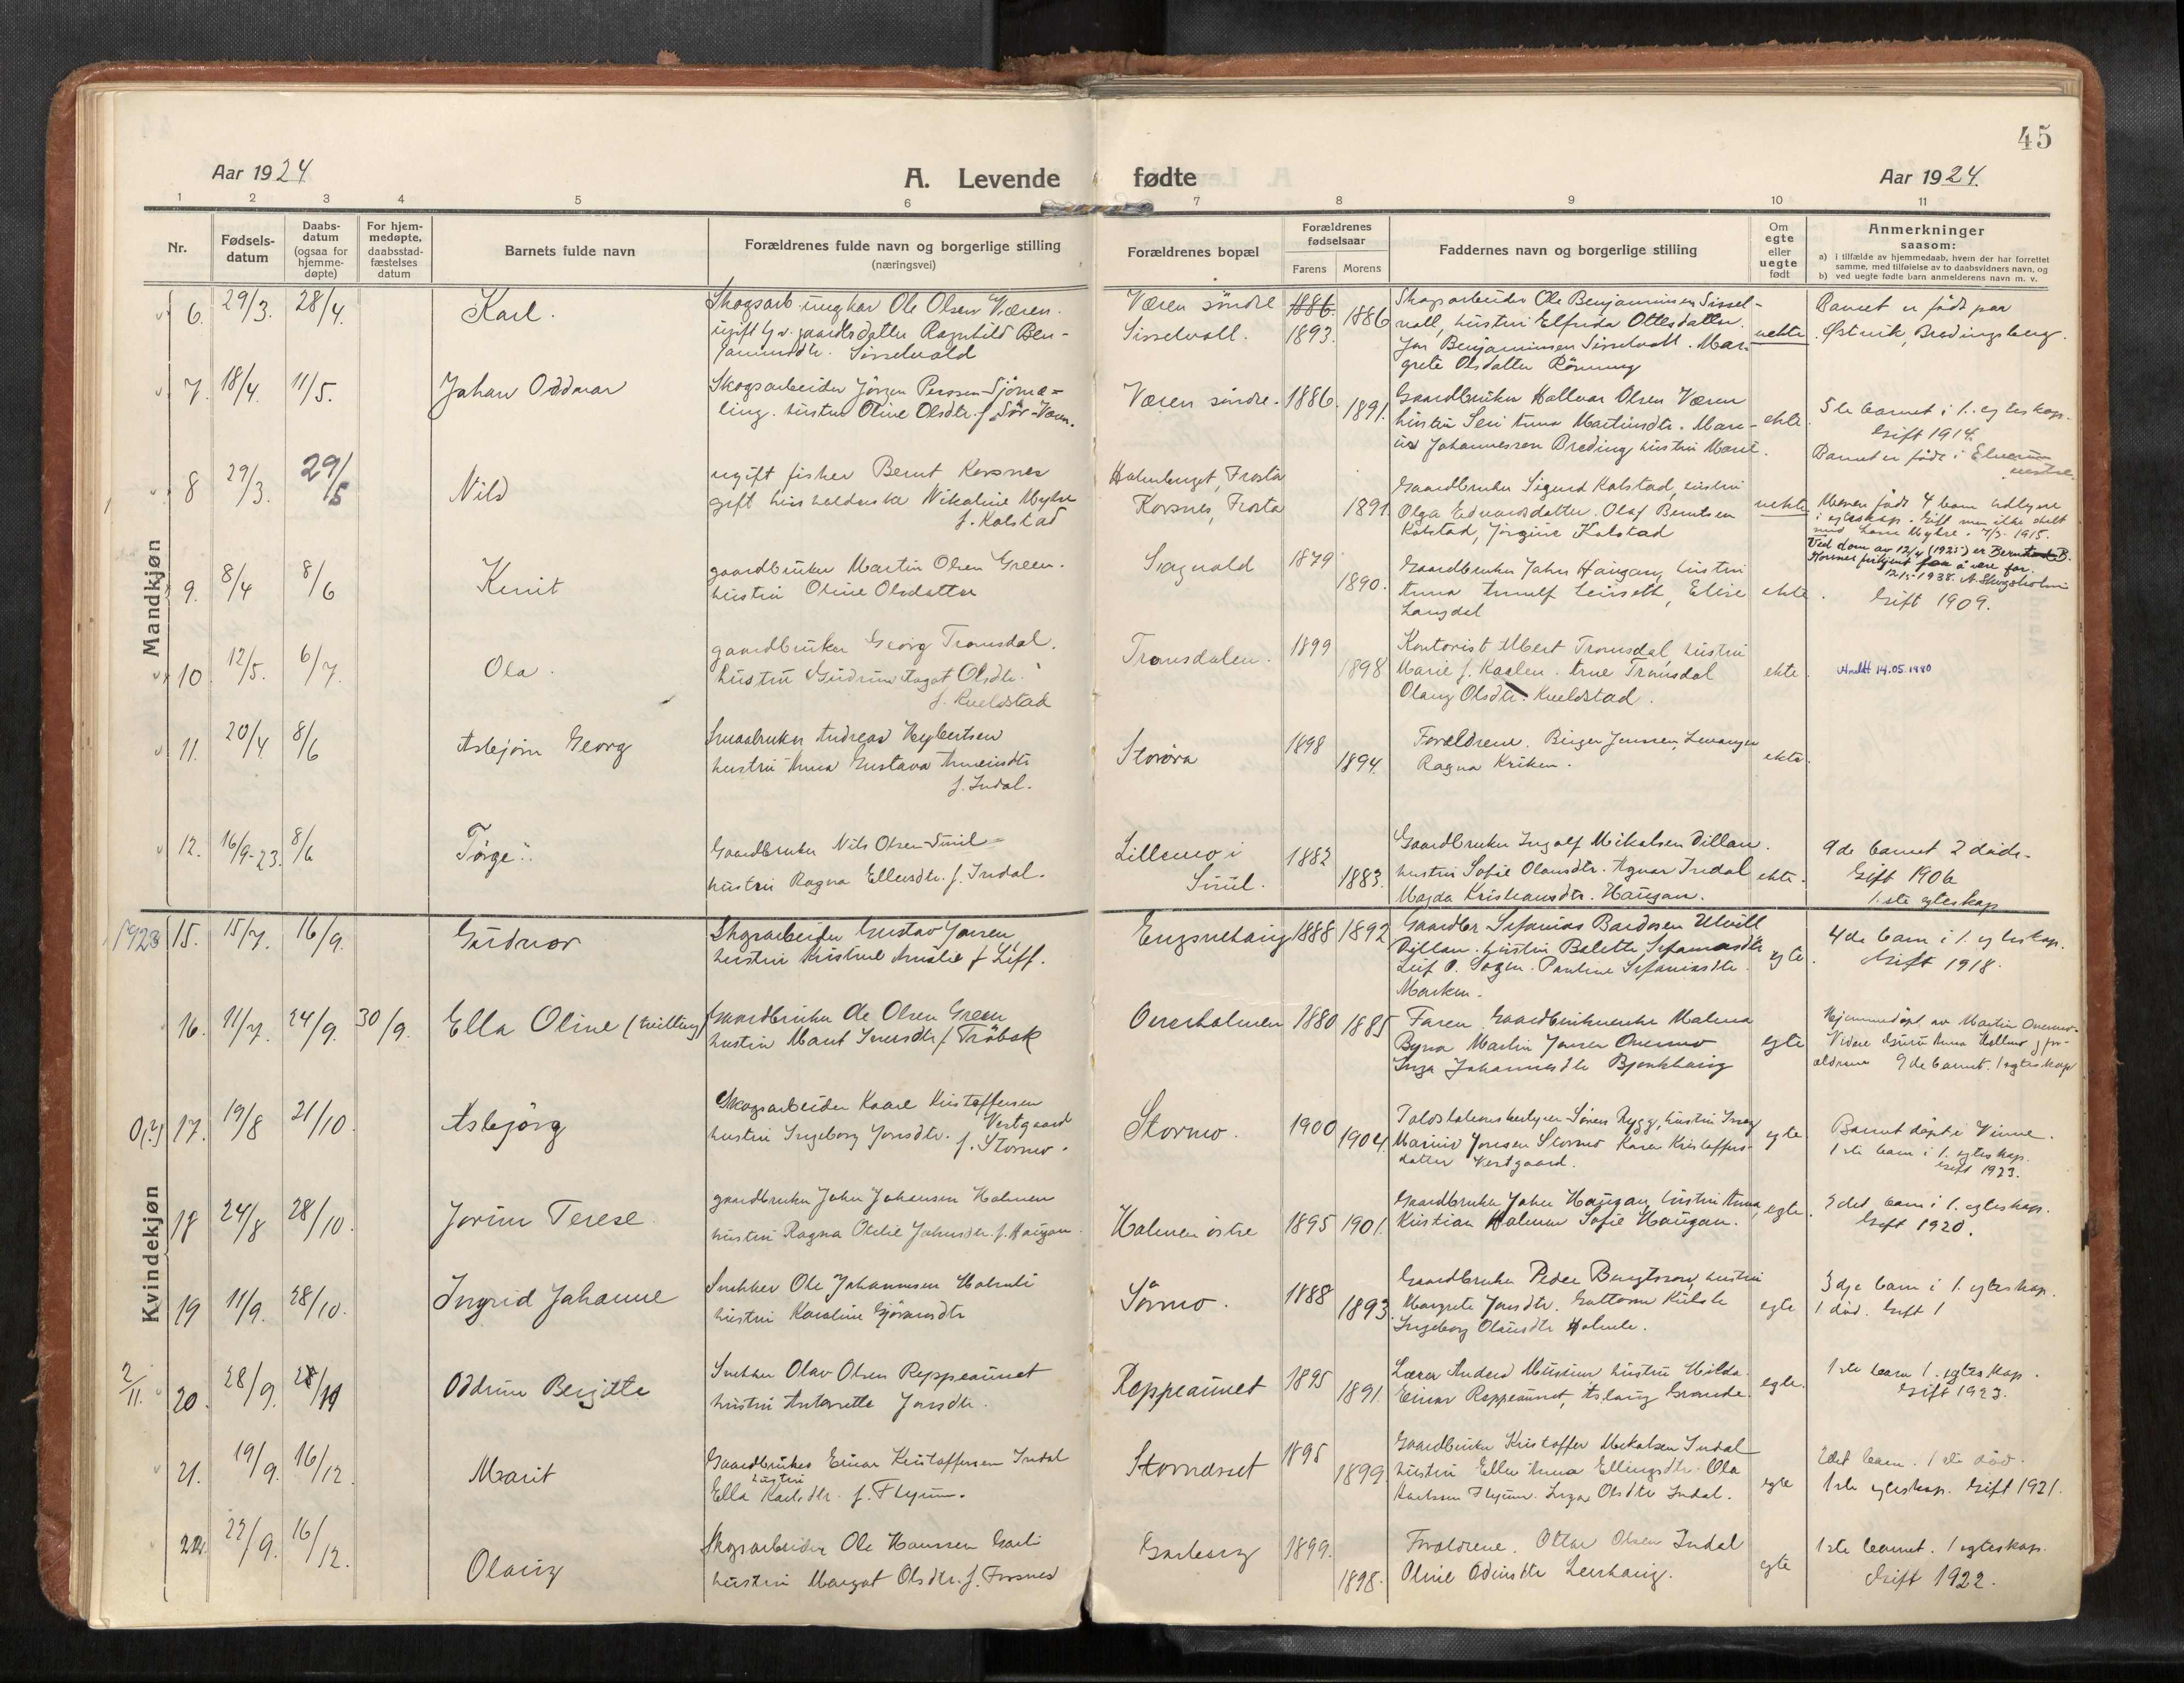 45
Aar 1924
A. Levende fødte
Aar 1924.
1 2 3 4 5 6 7 8 9 10 11
Nr.
Fødsels-
datum
Daabs-
datum
(ogsaa for
hjemme-
døpte)
For hjem-
medøpte,
daabsstad-
fæstelses
datum
Barnets fulde navn
Forældrenes fulde navn og borgerlige stilling
(næringsvei)
Forældrenes bopæl
Forældrenes
fødselsaar
Farens Morens
Faddernes navn og borgerlige stilling
Om
egte
eller
uegte
født
Anmerkninger
saasom:
a) i tilfælde av hjemmedaab, hvem der har forrettet
samme, med tilføielse av to daabsvidners navn, og
b) ved uegte fødte barn anmelderens navn m. v.
Mandkjøn
6. 29/3. 28/4. Karl.
Skogsarb. ungkar Ole Olsen Væren.
ugift gaardbr.datter Ragnhild Ben-
jaminsdtr. Sisselvold
Væren söndre
Sisselvoll.
1886. 1893. 1886
Skogarbeider Ole Benjaminsen Sissel-
voll, hustru Elfrida Ottesdatter.
Jon Benjaminsen Sisselvoll. Mar-
grete Olsdatter Rönning
uekte
Barnet er födt paa
Østvik, Bredingsberg.
7. 18/4. 11/5. Johan Oddmar
Skogsarbeider Jörgen Perssen-Sjöma-
ling. hustru Oline Olsdtr. f. Sör-Væren.
Væren söndre. 1886. 1891.
Gaardbruker Hallvar Olsen Væren
hustru Seri Anna Martinsdtr. Mari-
us Johannessen Breding hustru Marit.
ekte
5te barnet i 1. egteskap.
Gift 1914.
Barnet er födt i Elverum
vestre.
8 29/3. 29/5 Nils
ugift fisker Bernt Korsnes
gift husholderske Nikoline Myhre
f. Kolstad
Holmberget, Frosta
Korsnes, Frosta
1891
Gaardbruker Sigurd Kolstad, hustru
Olga Edvardsdatter. Olaf Berntsen
Kolstad, Jörgine Kolstad
uekte
Moren födt 4 barn tidligere
i egteskap. Gift men ikke skilt
med Lars Myhre. 7/3 1915.
Ved dom av 12/4 (1925) er Bernt B.
Korsnes funnet å være far.
12/5-1938. A. Skogsholm
9. 8/4 8/6 Kunit
gaardbruker Martin Olsen Green.
hustru Oline Olsdatter
Sagvold 1879 1890.
Gaardbruker John Haugan, hustru
Anna Arnulf Leirseth, Elise
Langdal
ekte.
Gift 1909.
10 12/5. 6/7. Ola.
gaardbruker Georg Tromsdal.
hustru Gudrun Aagot Olsdtr.
f. Kvelstad
Tromsdalen. 1899 1898
Kontorist Albert Tromsdal, hustru
Marie f. Kaalen. Arne Tromsdal
Olaug Olsdtr. Kvelstad.
ekte.
14.05.1980
11. 20/4. 8/6 Asbjörn Georg
Smaabruker Andreas Nybertsen
hustru Anna Gustava Arneindtr
f. Indal.
Storöra 1898 1894.
Foreldrene. Birger Jenssen, Levanger
Ragna Kriken.
ekte.
12. 16/9-23. 8/6 Törge.
Gaardbruker Nils Olsen-Suul
hustru Ragna Ellevsdtr. f. Indal.
Lillemo i
Suul.
1882 1883.
Gaardbruker Ingolf Mikalsen Dillan.
hustru Sofie Olausdtr. Agnar Indal
Magda Kristiansdtr. Haugan.
ekte.
9de barnet 2 døde-
Gift 1906
1.ste egteskap
Kvindekjøn
1923 15. 15/7. 16/9. Gudnor
Skogsarbeider Gustav Jonsen
hustru Kristine Amalie f. Liff.
Engsuehaug 1888 1892
Gaardbr Sefanias Bardosen Ulvill
Dillan. hustru Belette Sefaniasdtr
Leif O. Sagen. Pauline Sefaniasdtr.
Marken.
egte.
4de barn i 1. egteskap.
Gift 1918.
16. 11/7. 24/9. 30/9. Ella Oline (tvilling)
Gaardbruker Ole Olsen Green
hustru Marit Iversdtr f. Tröbak
Overholmen 1880 1885
Faren Gaardbrukerenke Malena
Byna Martin Jonsen Overmo
Inga Johannesdtr Bjerkhaug
egte
Hjemmedöpt av Martin Overmo.
Videre Guru Anna Holmo og for-
ældrene 9de barnet. 1 egteskap
O(?) 17. 19/8 21/10. Asbjörg
Skogsarbeider Kaare Kristoffersen
Vestgaard
hustru Ingeborg Jonsdtr. f. Stormo.
Stormo. 1900 1904.
Toldstationsbestyrer Sören Rygg, hustru Inga
Marius Jonsen Stormo Karen Kristoffers-
datter Vestgaard.
egte
Barnet döpt i Vinne.
1ste barn i 1. egteskap.
Gift 1923.
18 24/8 28/10. Jorun Terese
gaardbruker John Johansen Holmen
hustru Ragna Otelie Johnsdtr. f. Haugan.
Holmen östre 1895 1901.
Gaardbruker John Haugan, hustru Anna,
Kristian Holmen Sofie Haugan.
egte.
2det barn i 1. egteskap.
Gift 1920.
19 11/9. 28/10. Ingrid Johanne
Snekker Ole Johannesen Holmli
hustru Karoline Gjörandtr
Sörmo. 1888 1893.
Gaardbruker Peder Bengtsson, hustru
Margrete Jonsdtr. Guttorm Kulsli
Ingeborg Olausdtr Holmli.
egte
3dje barn i 1. egteskap.
1 død. Gift 1
2/11. 20. 28/9. 28/10 Oddrun Bergitte
Snekker Olav Olsen Reppeaunet
hustru Antonette Jonsdtr.
Reppeaunet 1895 1891.
Lærer Anders Musum hustru Hilda.
Einar Reppeaunet, Aslaug Grande.
egte.
1ste barn 1. egteskap.
Gift 1923.
21. 19/9. 16/12. Marit
Gaardbruker Einar Kristoffersen Indal
hustru
Ella Karlsdtr. f. Flyum.
Stornesset 1895 1899
Gaardbruker Kristoffer Mikalsen Indal
hustru Ellen Anna Ellingsdtr. Ola
Karlsen Flyum. Inga Olsdtr Indal.
egte
2det barn. 1ste død.
1ste egteskap. Gift 1921.
22. 22/9. 16/12. Olaug
Skogsarbeider Ole Hanssen Garli
hustru Margot Olsdtr. f. Forsnes
Garberg 1899. 1898.
Foreldrene. Ottar Olsen Indal
Oline Odinsdtr Leirhaug.
egte
1ste barnet. 1 egteskap.
Gift 1922.